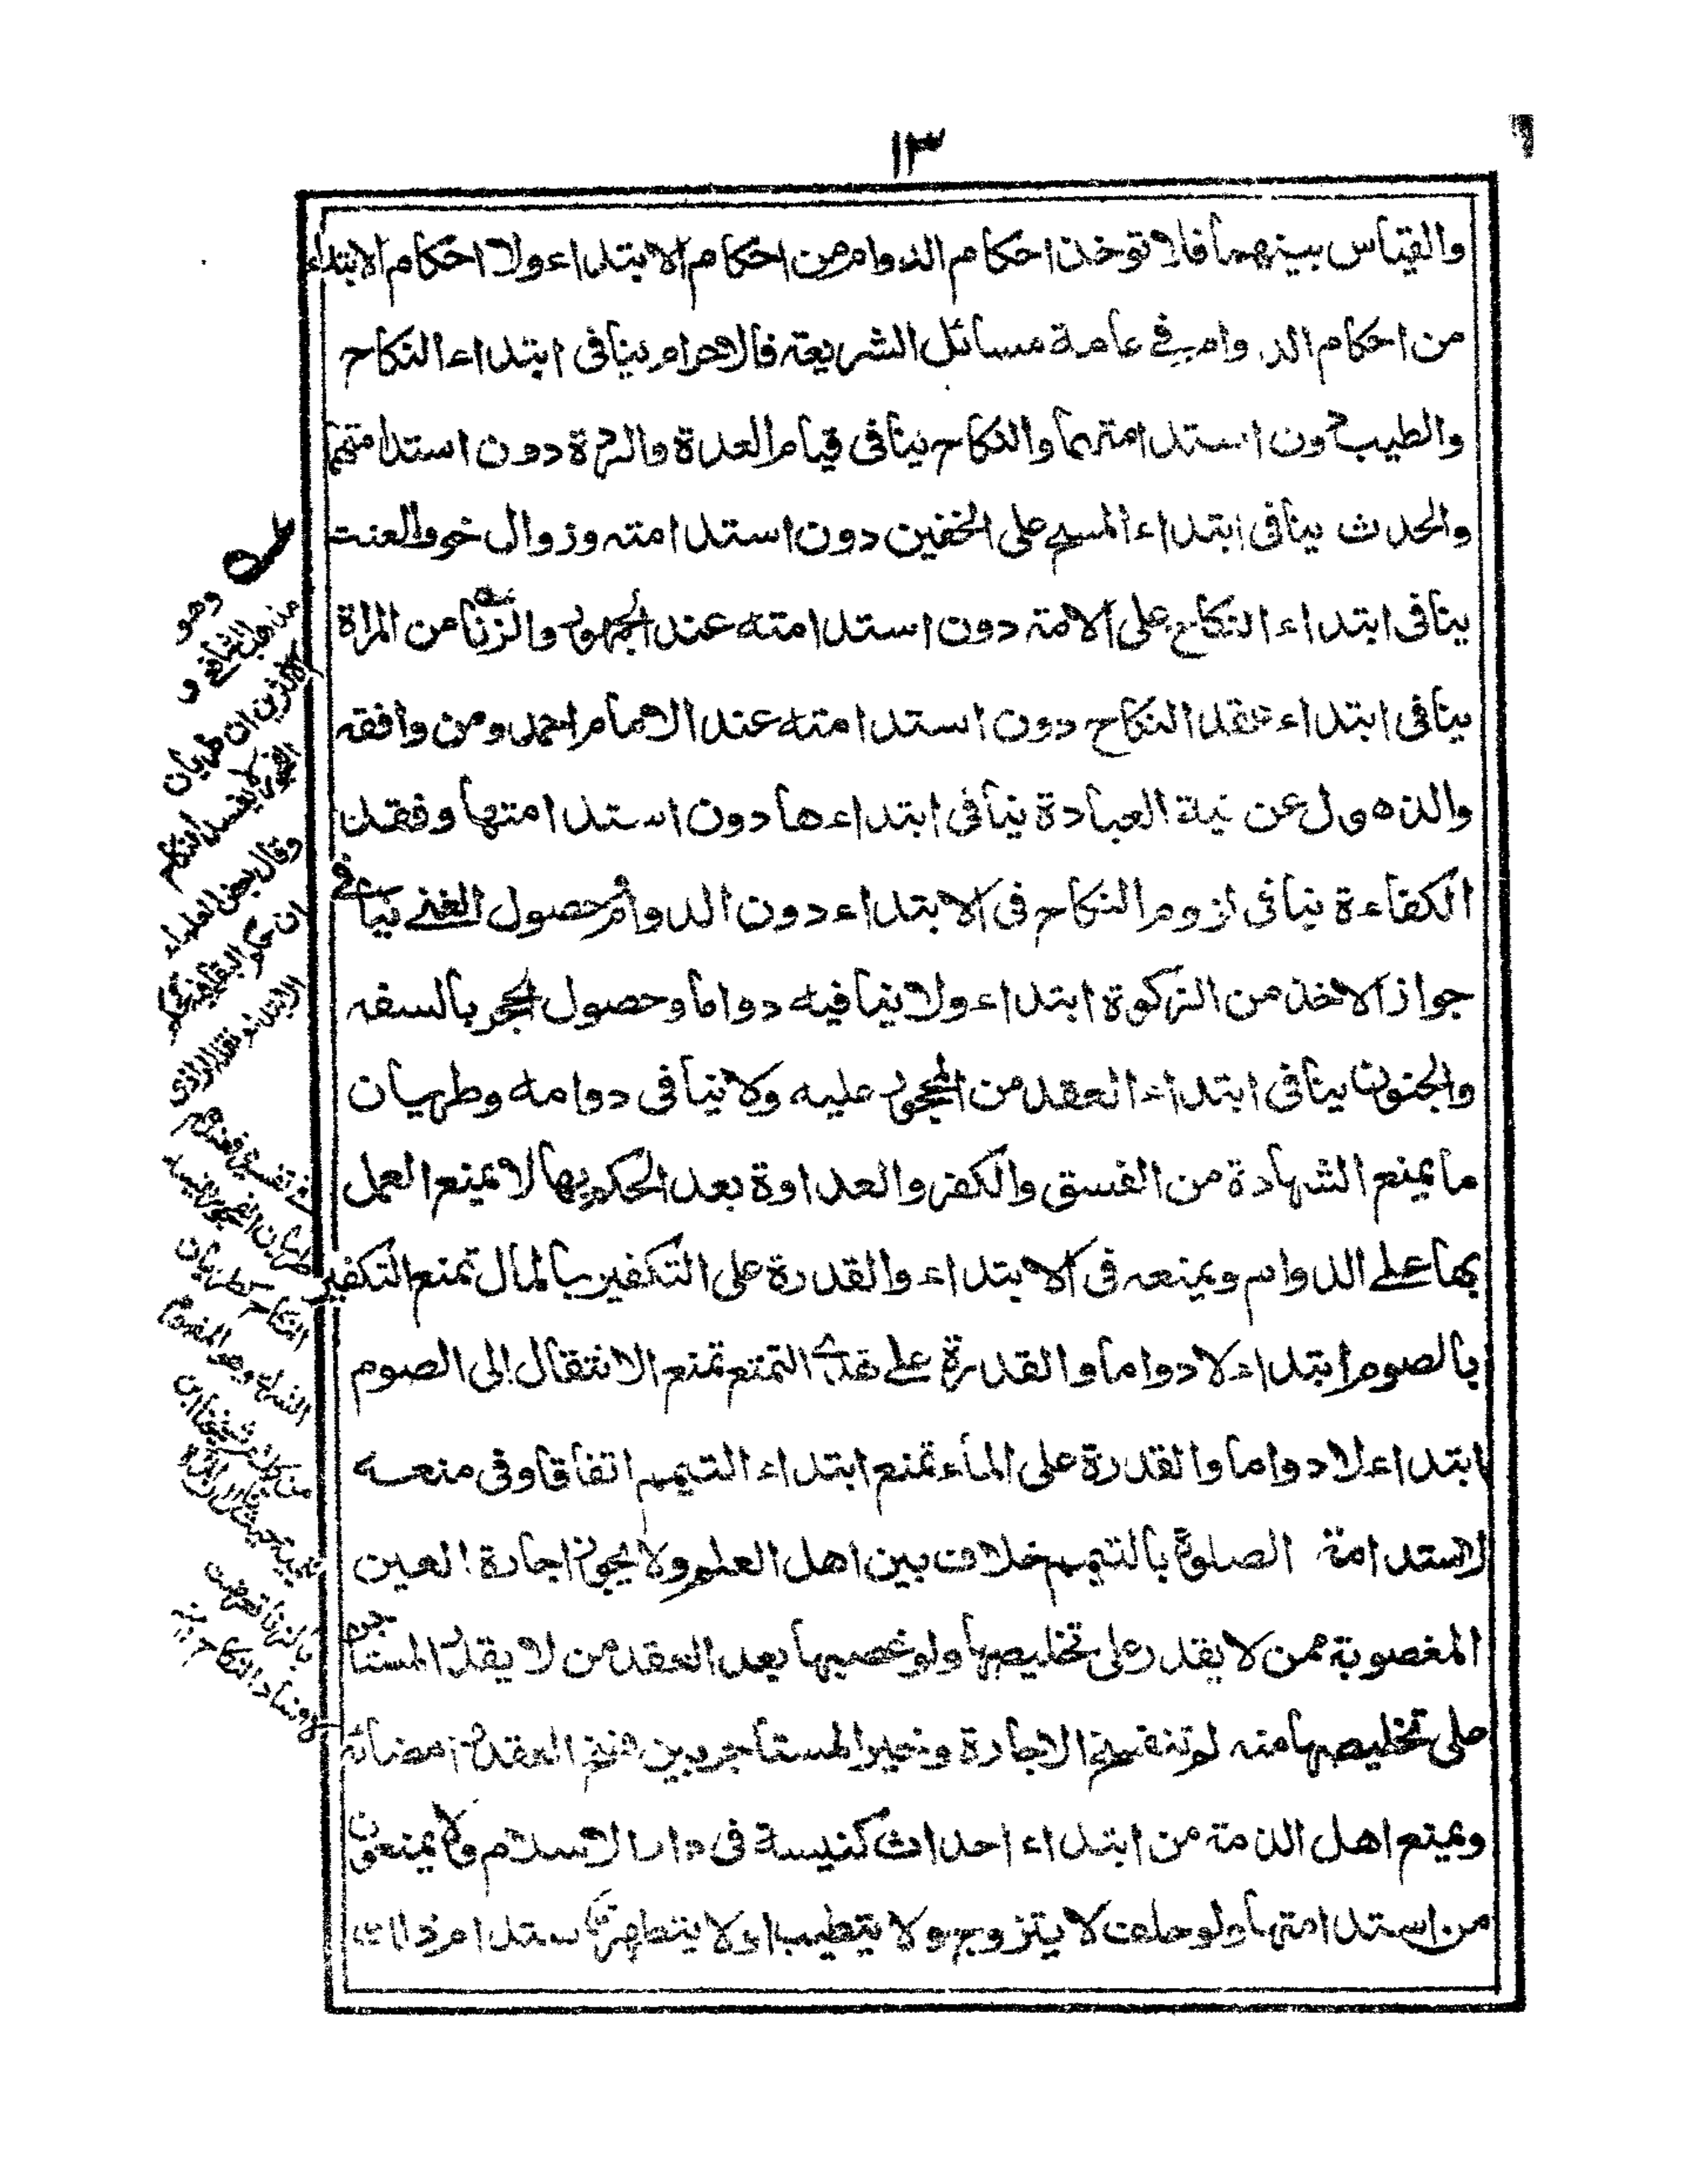 ١٣
والقياس بينهما فلا توخذ احكام الدوام من احكام الابتداء ولا احكام الابتداء
من احكام الدوام في عامة مسائل الشريعة فالاحرام ينافى ابتداء النكاح
والطيب دون استدامتهما والنكاح ينافى قيام العدة والردة دون استدامتهما
والحدث ينافى ابتداء المسح على الخفين دون استدامته وزوال خوف العنت
ينافى ابتداء النكاح على الامة دون استدامته عند الجمهور والزنا من المراة
ينافى ابتداء عقد النكاح دون استدامته عند الامام احمد ومن وافقه
والذهول عن نية العبادة ينافى ابتداءها دون استدامتها وفقد
الكفاءة ينافى لزوم النكاح فى الابتداء دون الدوام وحصول الغنى ينافى
جواز الاخذ من الزكوة ابتداء ولا ينافيه دواما وحصول الحجر بالسفه
والجنون ينافى ابتداء العقد من المحجور عليه ولا ينافى دوامه وطريان
ما يمنع الشهادة من الفسق والكفر والعداوة بعد الحكم بها لا يمنع العمل
بها على الدوام ويمنعه فى الابتداء والقدرة على التكفير بالمال تمنع التكفير
بالصوم ابتداء لا دواما والقدرة على هدى التمتع تمنع الانتقال الى الصوم
ابتداء لا دواما والقدرة على الماء تمنع ابتداء التيمم اتفاقا وفى منعه
لاستدامة الصلوة بالتيمم خلاف بين اهل العلم ولا يجوز اجارة العين
المغصوبة ممن لا يقدر على تخليصها ولو غصبها بعد العقد من لا يقدر المستاجر
على تخليصها منه لم تنفسخ الاجارة وخير المستاجر بين فسخ العقد و امضائه
ويمنع اهل الذمة من ابتداء احداث كنيسة فى دار الاسلام ولا يمنعون
من استدامتها ولو حلف لا يتزوج ولا يتطيب او لا يتطهر فاستدام ذلك
وهو
مذهب الشافعى و
الاكثرين ان طريان
وقال بعض العلماء